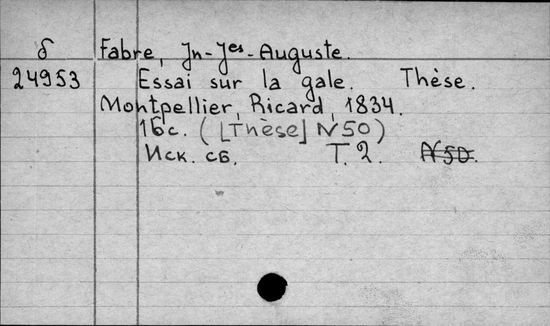 δ Fabre, Jn-Jes-Auguste.
24953 Essai sur la gale. Thèse.
Montpellier, Ricard, 1834.
16с. ([Thèse] N 50)
Иск. сб. Т. 2. N 50.